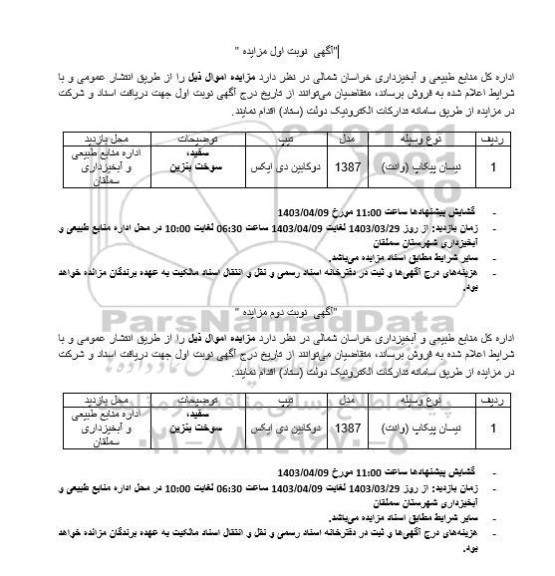 "آگهی نوبت اول مزایده "
اداره کل منابع طبیعی و آبخیزداری خراسان شمالی در نظر دارد مزایده اموال ذیل را از طریق انتشار عمومی و با
شرایط اعلام شده به فروش برساند، متقاضیان می‌توانند از تاریخ درج آگهی نوبت اول جهت دریافت اسناد و شرکت
در مزایده از طریق سامانه تدارکات الکترونیک دولت (ستاد) اقدام نمایند.
ردیف نوع وسیله مدل تیپ توضیحات محل بازدید
1 نیسان پیکاپ (وانت) 1387 دوکابین دی ایکس سفید، سوخت بنزین اداره منابع طبیعی و آبخیزداری سملقان
- گشایش پیشنهادها ساعت 11:00 مورخ 1403/04/09
- زمان بازدید: از روز 1403/03/29 لغایت 1403/04/09 ساعت 06:30 لغایت 10:00 در محل اداره منابع طبیعی و
آبخیزداری شهرستان سملقان
- سایر شرایط مطابق اسناد مزایده می‌باشد.
- هزینه‌های درج آگهی‌ها و ثبت در دفترخانه اسناد رسمی و نقل و انتقال اسناد مالکیت به عهده برندگان مزائده خواهد
بود.
"آگهی نوبت دوم مزایده "
ParsNamadData
اداره کل منابع طبیعی و آبخیزداری خراسان شمالی در نظر دارد مزایده اموال ذیل را از طریق انتشار عمومی و با
شرایط اعلام شده به فروش برساند، متقاضیان می‌توانند از تاریخ درج آگهی نوبت اول جهت دریافت اسناد و شرکت
در مزایده از طریق سامانه تدارکات الکترونیک دولت (ستاد) اقدام نمایند.
ردیف نوع وسیله مدل تیپ توضیحات محل بازدید
1 نیسان پیکاپ (وانت) 1387 دوکابین دی ایکس سفید، سوخت بنزین اداره منابع طبیعی و آبخیزداری سملقان
۰۲۱-۸۸۳۴۹۶۷۰-۵
- گشایش پیشنهادها ساعت 11:00 مورخ 1403/04/09
- زمان بازدید: از روز 1403/03/29 لغایت 1403/04/09 ساعت 06:30 لغایت 10:00 در محل اداره منابع طبیعی و
آبخیزداری شهرستان سملقان
- سایر شرایط مطابق اسناد مزایده می‌باشد.
- هزینه‌های درج آگهی‌ها و ثبت در دفترخانه اسناد رسمی و نقل و انتقال اسناد مالکیت به عهده برندگان مزائده خواهد
بود.